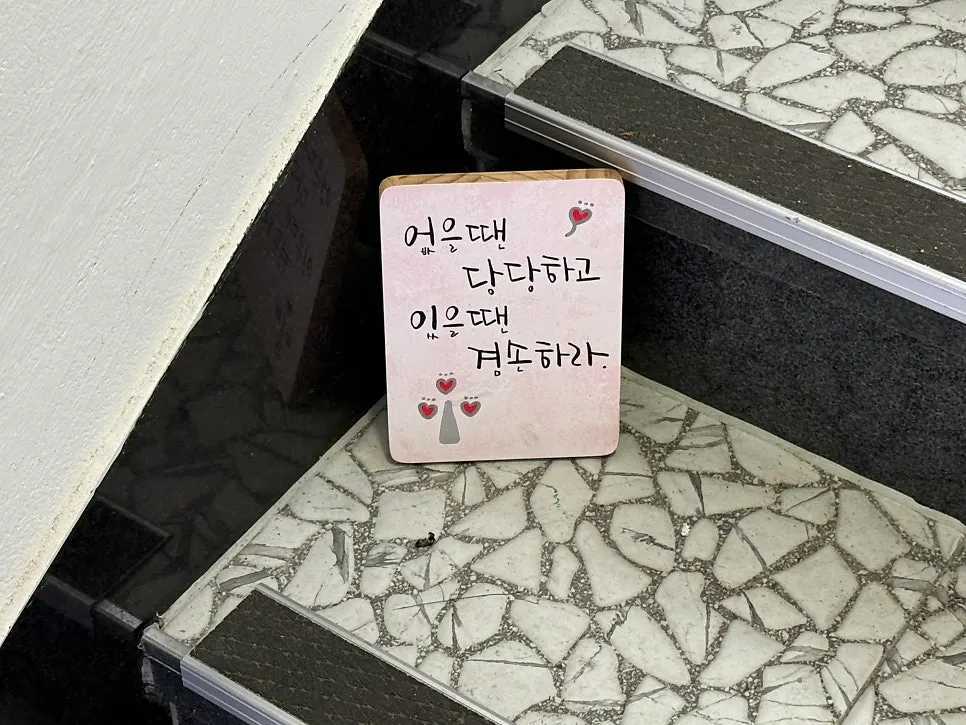 없을땐
당당하고
있을땐
겸손하라.